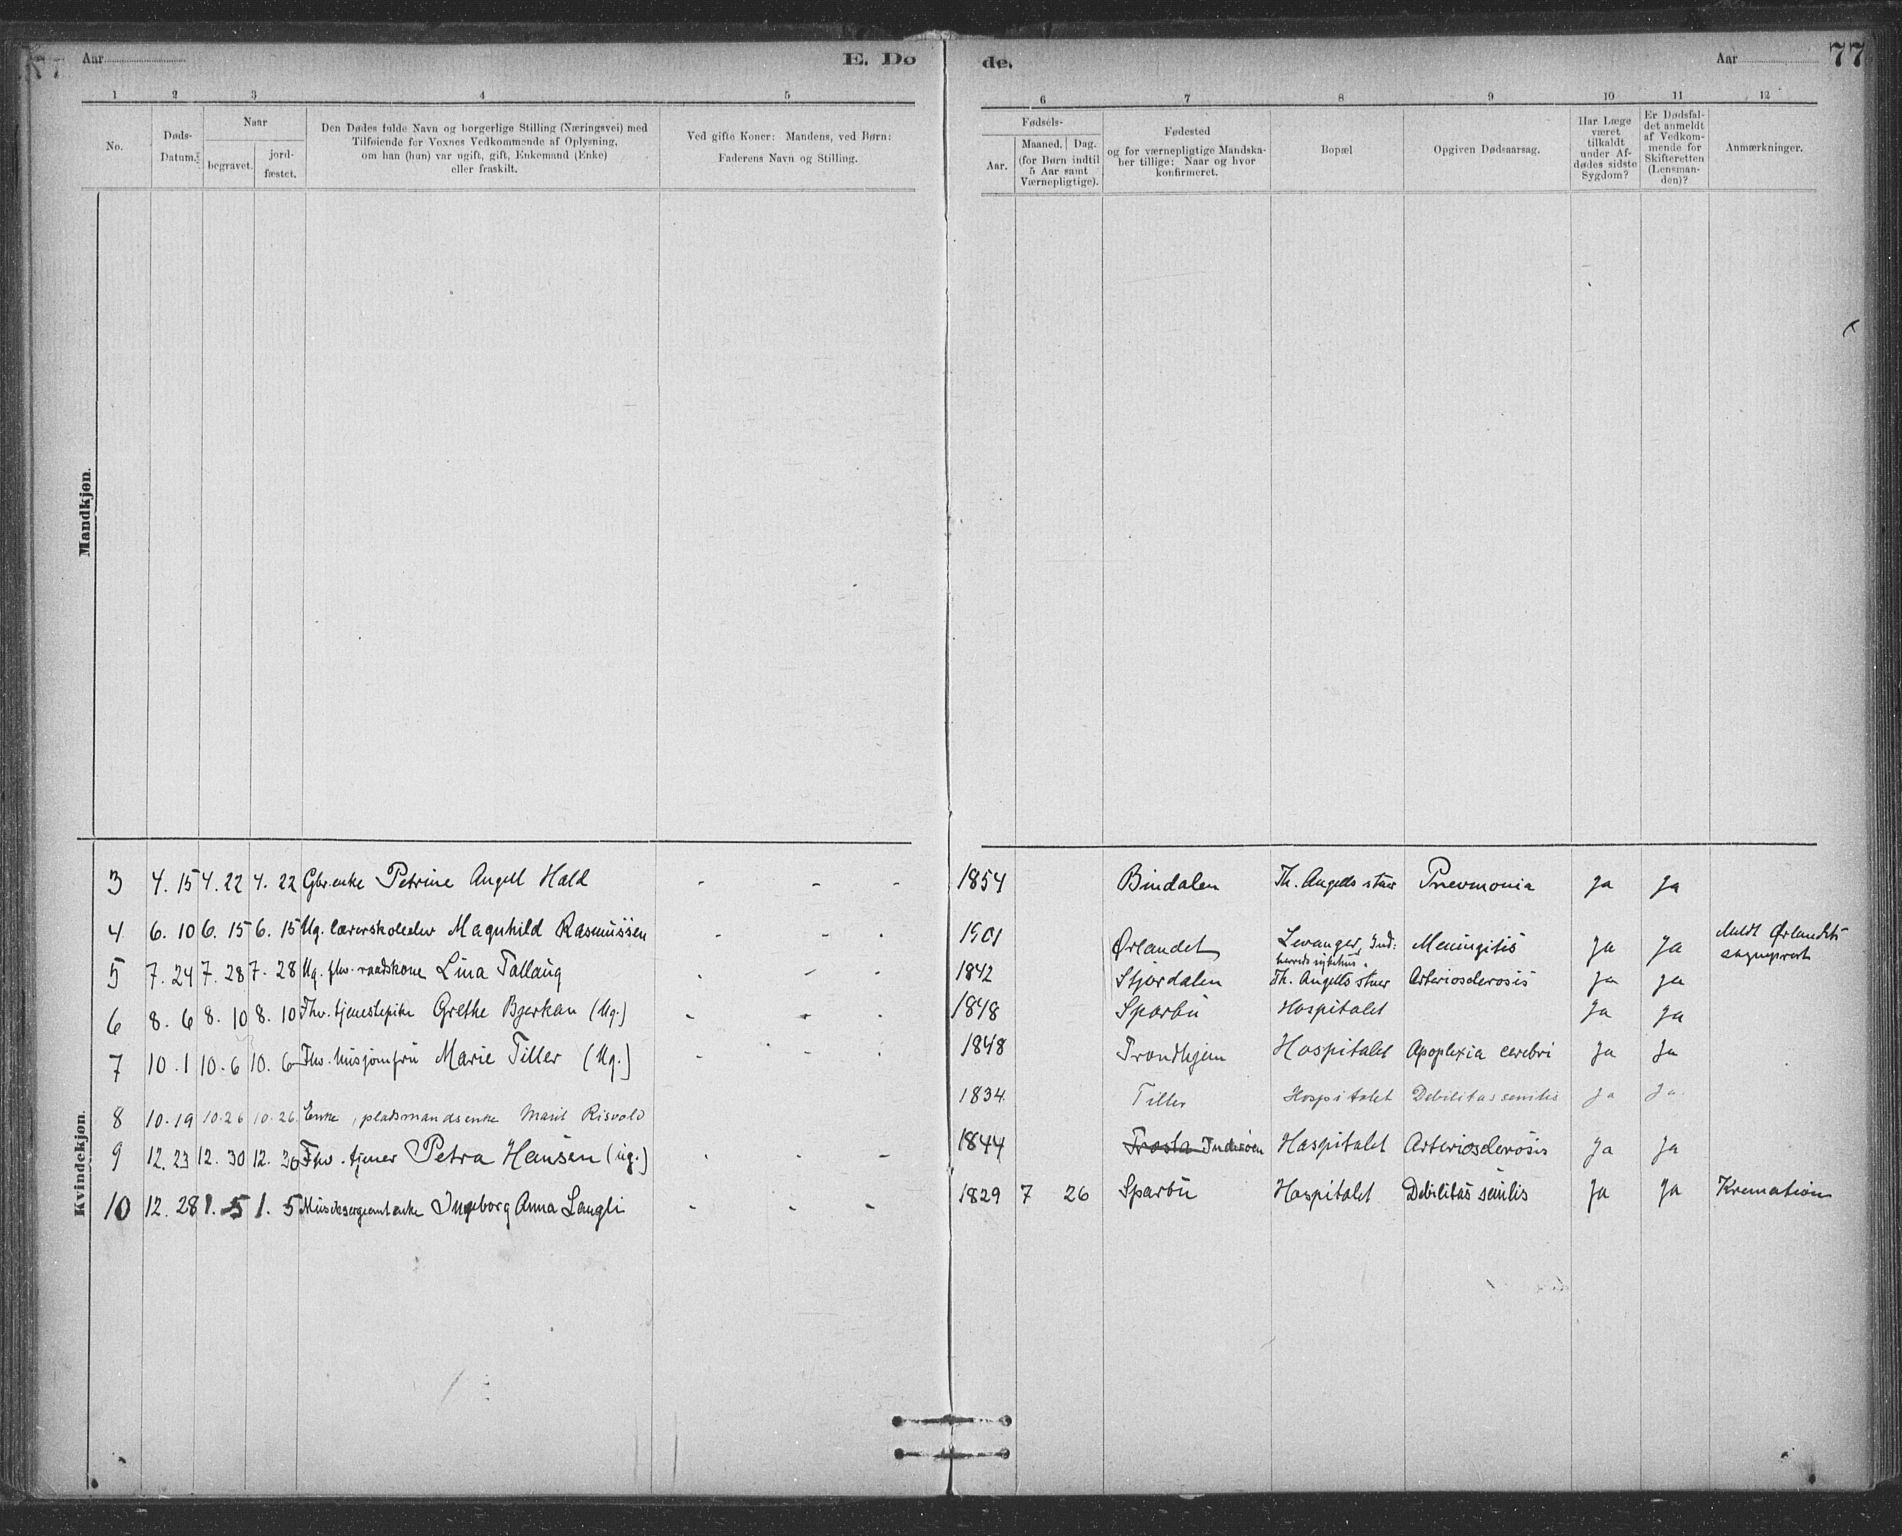 Aar
E. Dø
de.
Aar
77
1 2 3 4 5 6 7 8 9 10 11 12
No.
Døds-
Datum.
Naar
begravet.
jord-
fæstet.
Den Dødes fulde Navn og borgerlige Stilling (Næringsvei) med
Tilføiende for Voxnes Vedkommende af Oplysning,
om han (hun) var ugift, gift, Enkemand (Enke)
eller fraskilt.
Ved gifte Koner: Mandens, ved Børn:
Faderens Navn og Stilling.
Fødsels-
Aar.
Maaned. Dag.
(for Børn indtil
5 Aar samt
Værnepligtige).
Fødested
og for værnepligtige Mandska-
ber tillige: Naar og hvor
konfirmeret.
Bopæl
Opgiven Dødsaarsag.
Har Læge
været
tilkaldt
under Af-
dødes sidste
Sygdom?
Er Dødsfal-
det anmeldt
af Vedkom-
mende for
Skifteretten
(Lensman-
den)?
Anmærkninger.
Mandkjøn.
Kvindekjøn.
3 4. 15 4. 22 4. 22 Gbr.enke Petrine Angell Hald - - - 1854 Bindalen Th. Angells stuer Pnevmonia Ja Ja
4 6. 10 6. 15 6. 15 Ug. lærerskoleelev Magnhild Rasmussen - - - 1901 Ørlandet Levanger, Ind:
herreds sykehus. Meningitis Ja Ja Meldt Ørlandets
sogneprest
5 7. 24 7. 28 7. 28 Ug. fhv. raadskone Lina Tallaug - - - 1842 Stjørdalen Th. Angells stuer Arteriosclerosis Ja Ja
6 8. 6 8. 10 8. 10 Fhv. tjenestepike Grethe Bjerkan (Ug.) - - - 1848 Sparbu Hospitalet Ja Ja
7 10. 1 10. 6 10. 6 Fhv. husjomfru Marie Tiller (Ug.) - - - 1848 Trondhjem Hospitalet Apoplexia cerebri Ja Ja
8 10. 19 10. 26 10. 26. Enke, pladsmandsenke Marit Risvold 1834. Tiller Hospitalet Debilitas senilis Ja Ja.
9 12. 23 12. 30 12. 30 Fhv. tjener Petra Hansen (ug.) - - - 1844 Frosta Inderøen Hospitalet Arteriosclerosis Ja Ja
10 12. 28 1. 5 1. 5 Musiksergeantenke Ingeborg Anna Langli - - - 1829 7 26 Sparbu Hospitalet Debilitas senilis Ja Ja Kremation